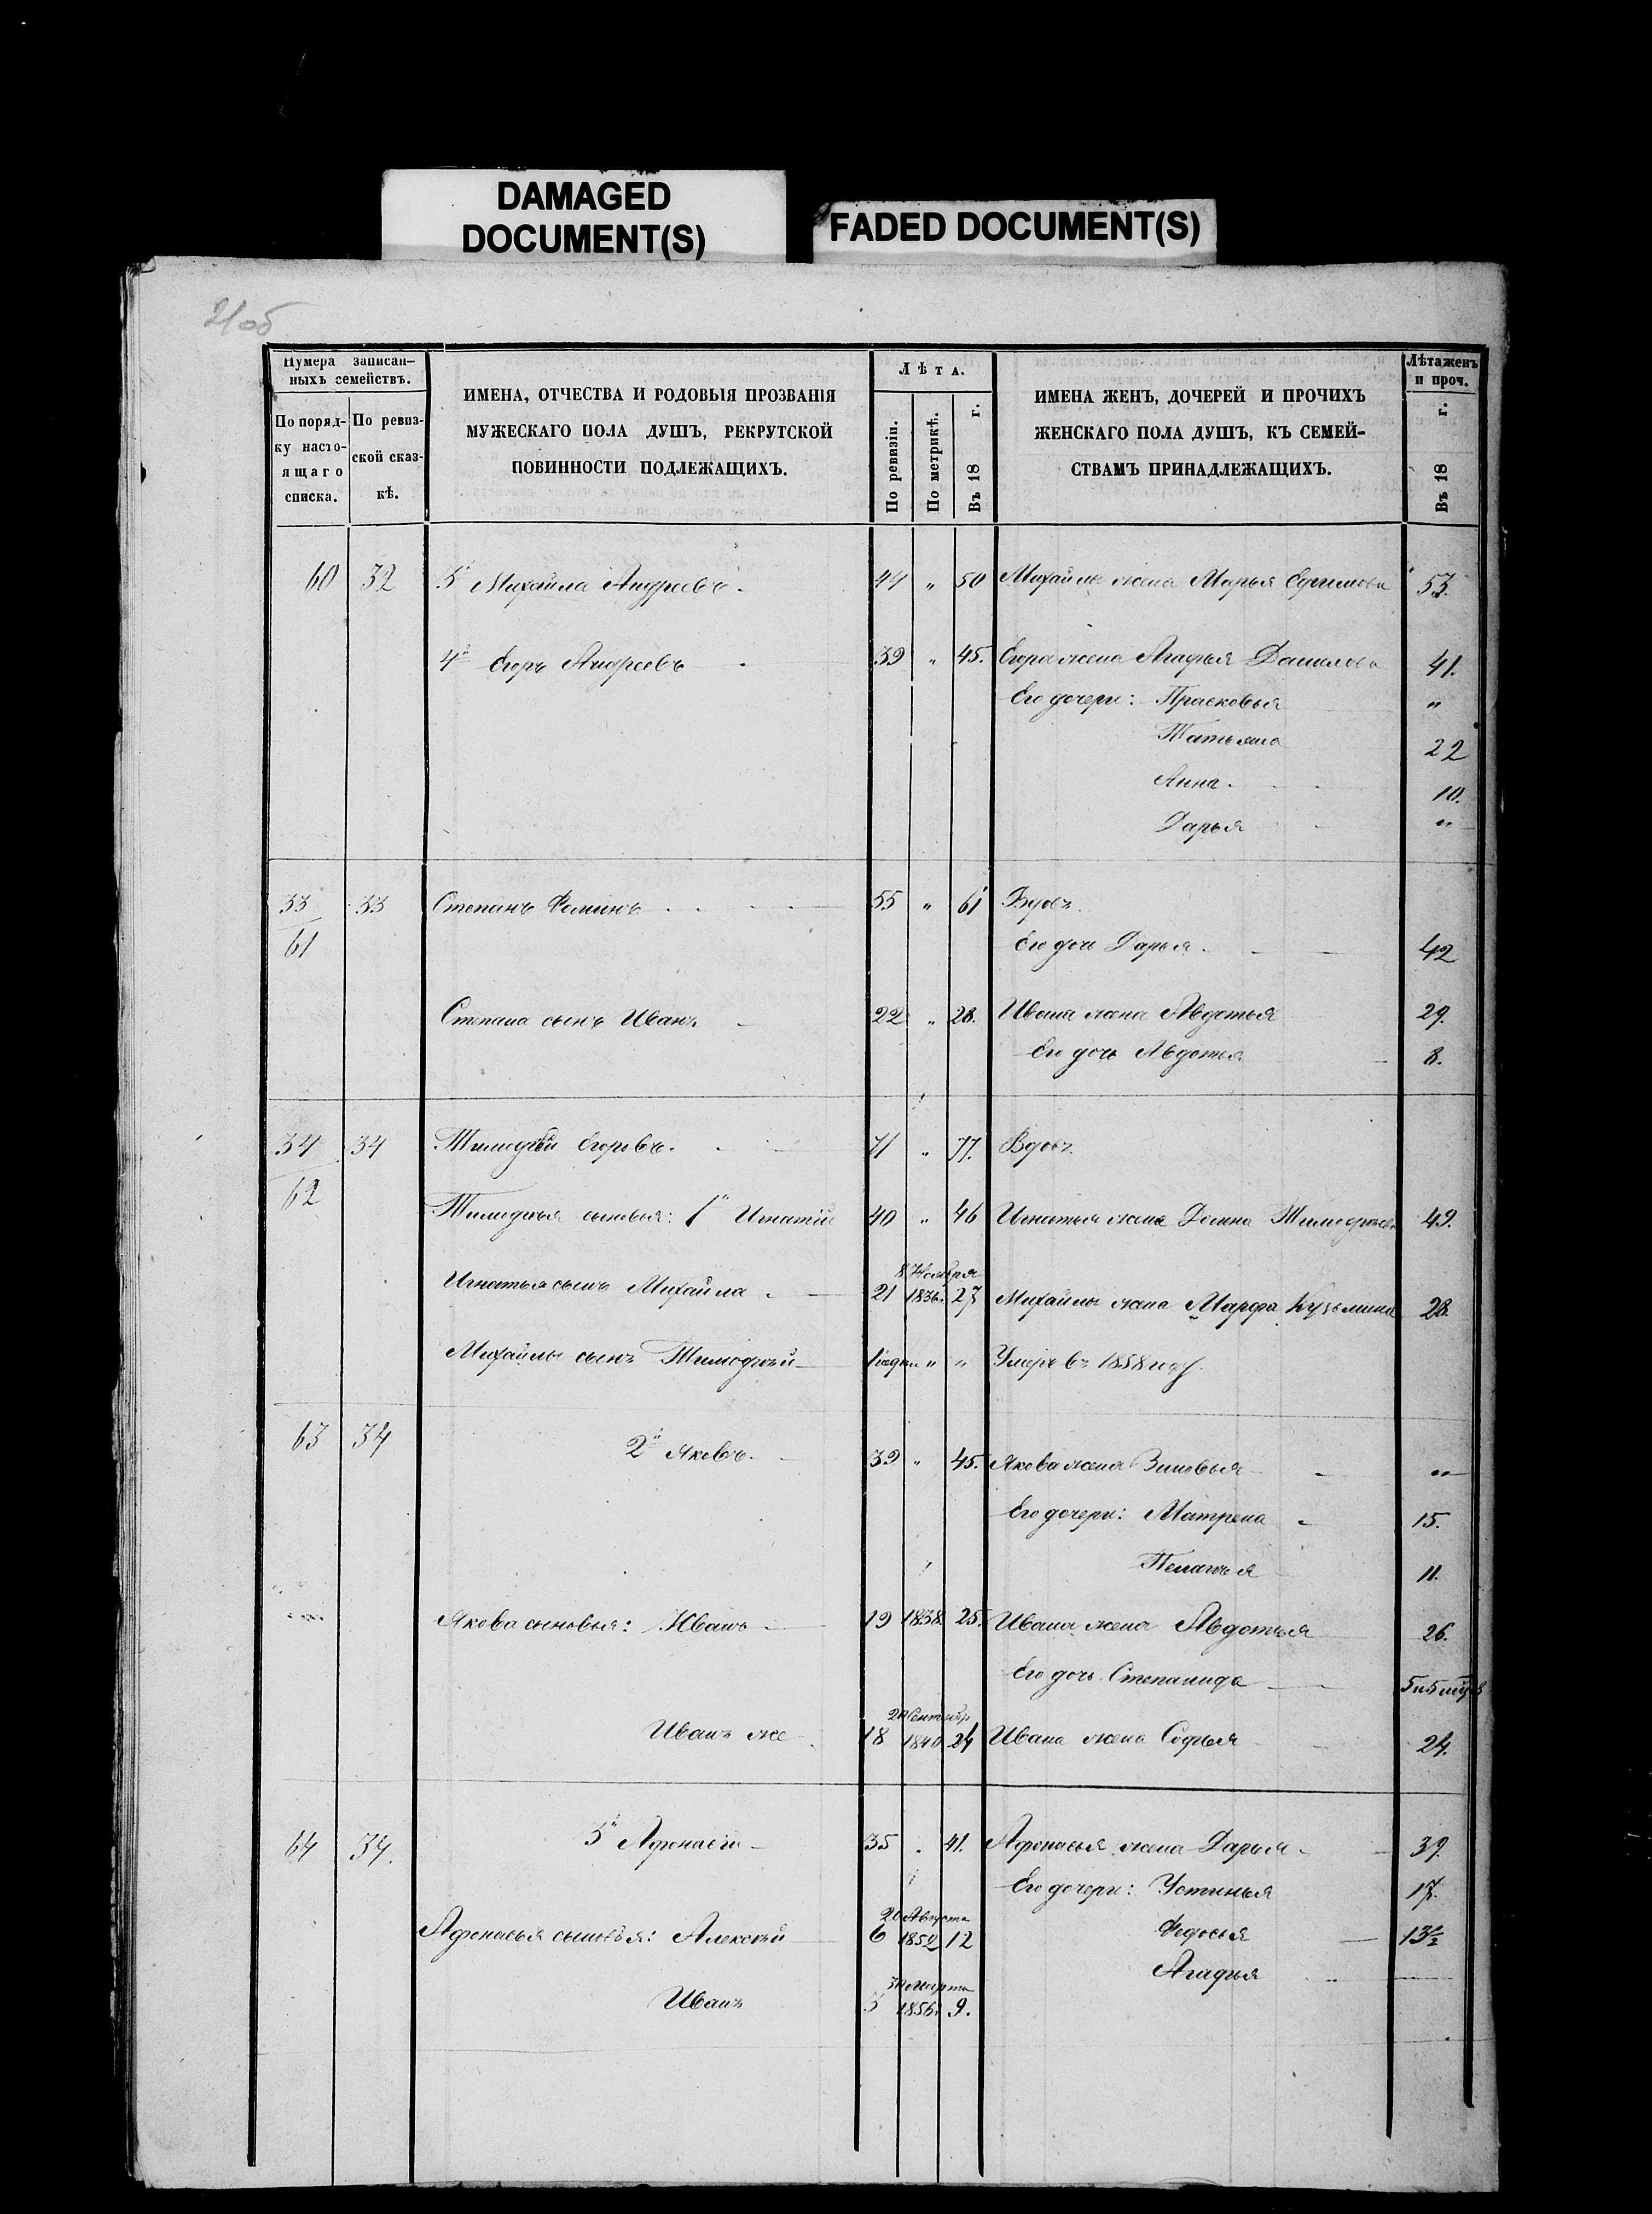 DAMAGED
DOCUMENT(S)
FADED DOCUMENT(S)
21об
Нумера записан-
ныхъ семействъ.
По поряд-
ку насто-
ящаго
списка.
По ревиз-
ской сказ-
кѣ.
ИМЕНА, ОТЧЕСТВА И РОДОВЫЯ ПРОЗВАНІЯ
МУЖЕСКАГО ПОЛА ДУШЪ, РЕКРУТСКОЙ
ПОВИННОСТИ ПОДЛЕЖАЩИХЪ.
Лѣта.
По ревизіи.
По метрикѣ.
Въ 18 г.
ИМЕНА ЖЕНЪ, ДОЧЕРЕЙ И ПРОЧИХЪ
ЖЕНСКАГО ПОЛА ДУШЪ, КЪ СЕМЕЙ-
СТВАМЪ ПРИНАДЛЕЖАЩИХЪ.
Лѣта женъ
и проч.
Въ 18 г.
60 32 3й Михайла Андреевъ. 44 " 50 Михайлы жена Марья Ефимова 53.
4й Егоръ Андреевъ 39 " 45. Егора жена Агафья Данилова 41.
Его дочери: Прасковья "
Татьяна 22
Анна. 10.
Дарья "
33 33 Степанъ Фоминъ 55 " 61 Вдовъ.
61 Его дочь Дарья. 42
Степана сынъ Иванъ 22 " 28. Ивана жена Авдотья 29.
Его дочь Авдотья 8.
34 34 Тимофѣй Егоровъ. 71 " 77. Вдовъ.
62 Тимофѣя сыновья: 1й Игнатій 40 " 46 Игнатья жена Домна Тимофѣева 49.
8 Ноября
Игнатья сынъ Михайла 21 1836. 27 Михайлы жена Марфа Кузьмина 28.
Михайлы сынъ Тимофѣй " " Умеръ въ 1858 году.
63 34 2й Яковъ. 39 " 45. Якова жена Зиновья "
Его дочери: Матрена 15.
Пелагѣя 11.
Якова сыновья: Иванъ 19 1838. 25. Ивана жена Авдотья 26.
Его дочь Степанида 5 и 5 мѣ
Сентябр
Иванъ же 18 1840 24 Ивана жена Софья 24.
64 34. 3й Афонасій 35 . 41. Афонасья жена Дарья 39.
Его дочери: Устинья 17.
20 Августа
Афонасья сыновья: Алексѣй 6 1852 12 Федосья 13½
Агафья
Марта
Иванъ 3 1855. 9.